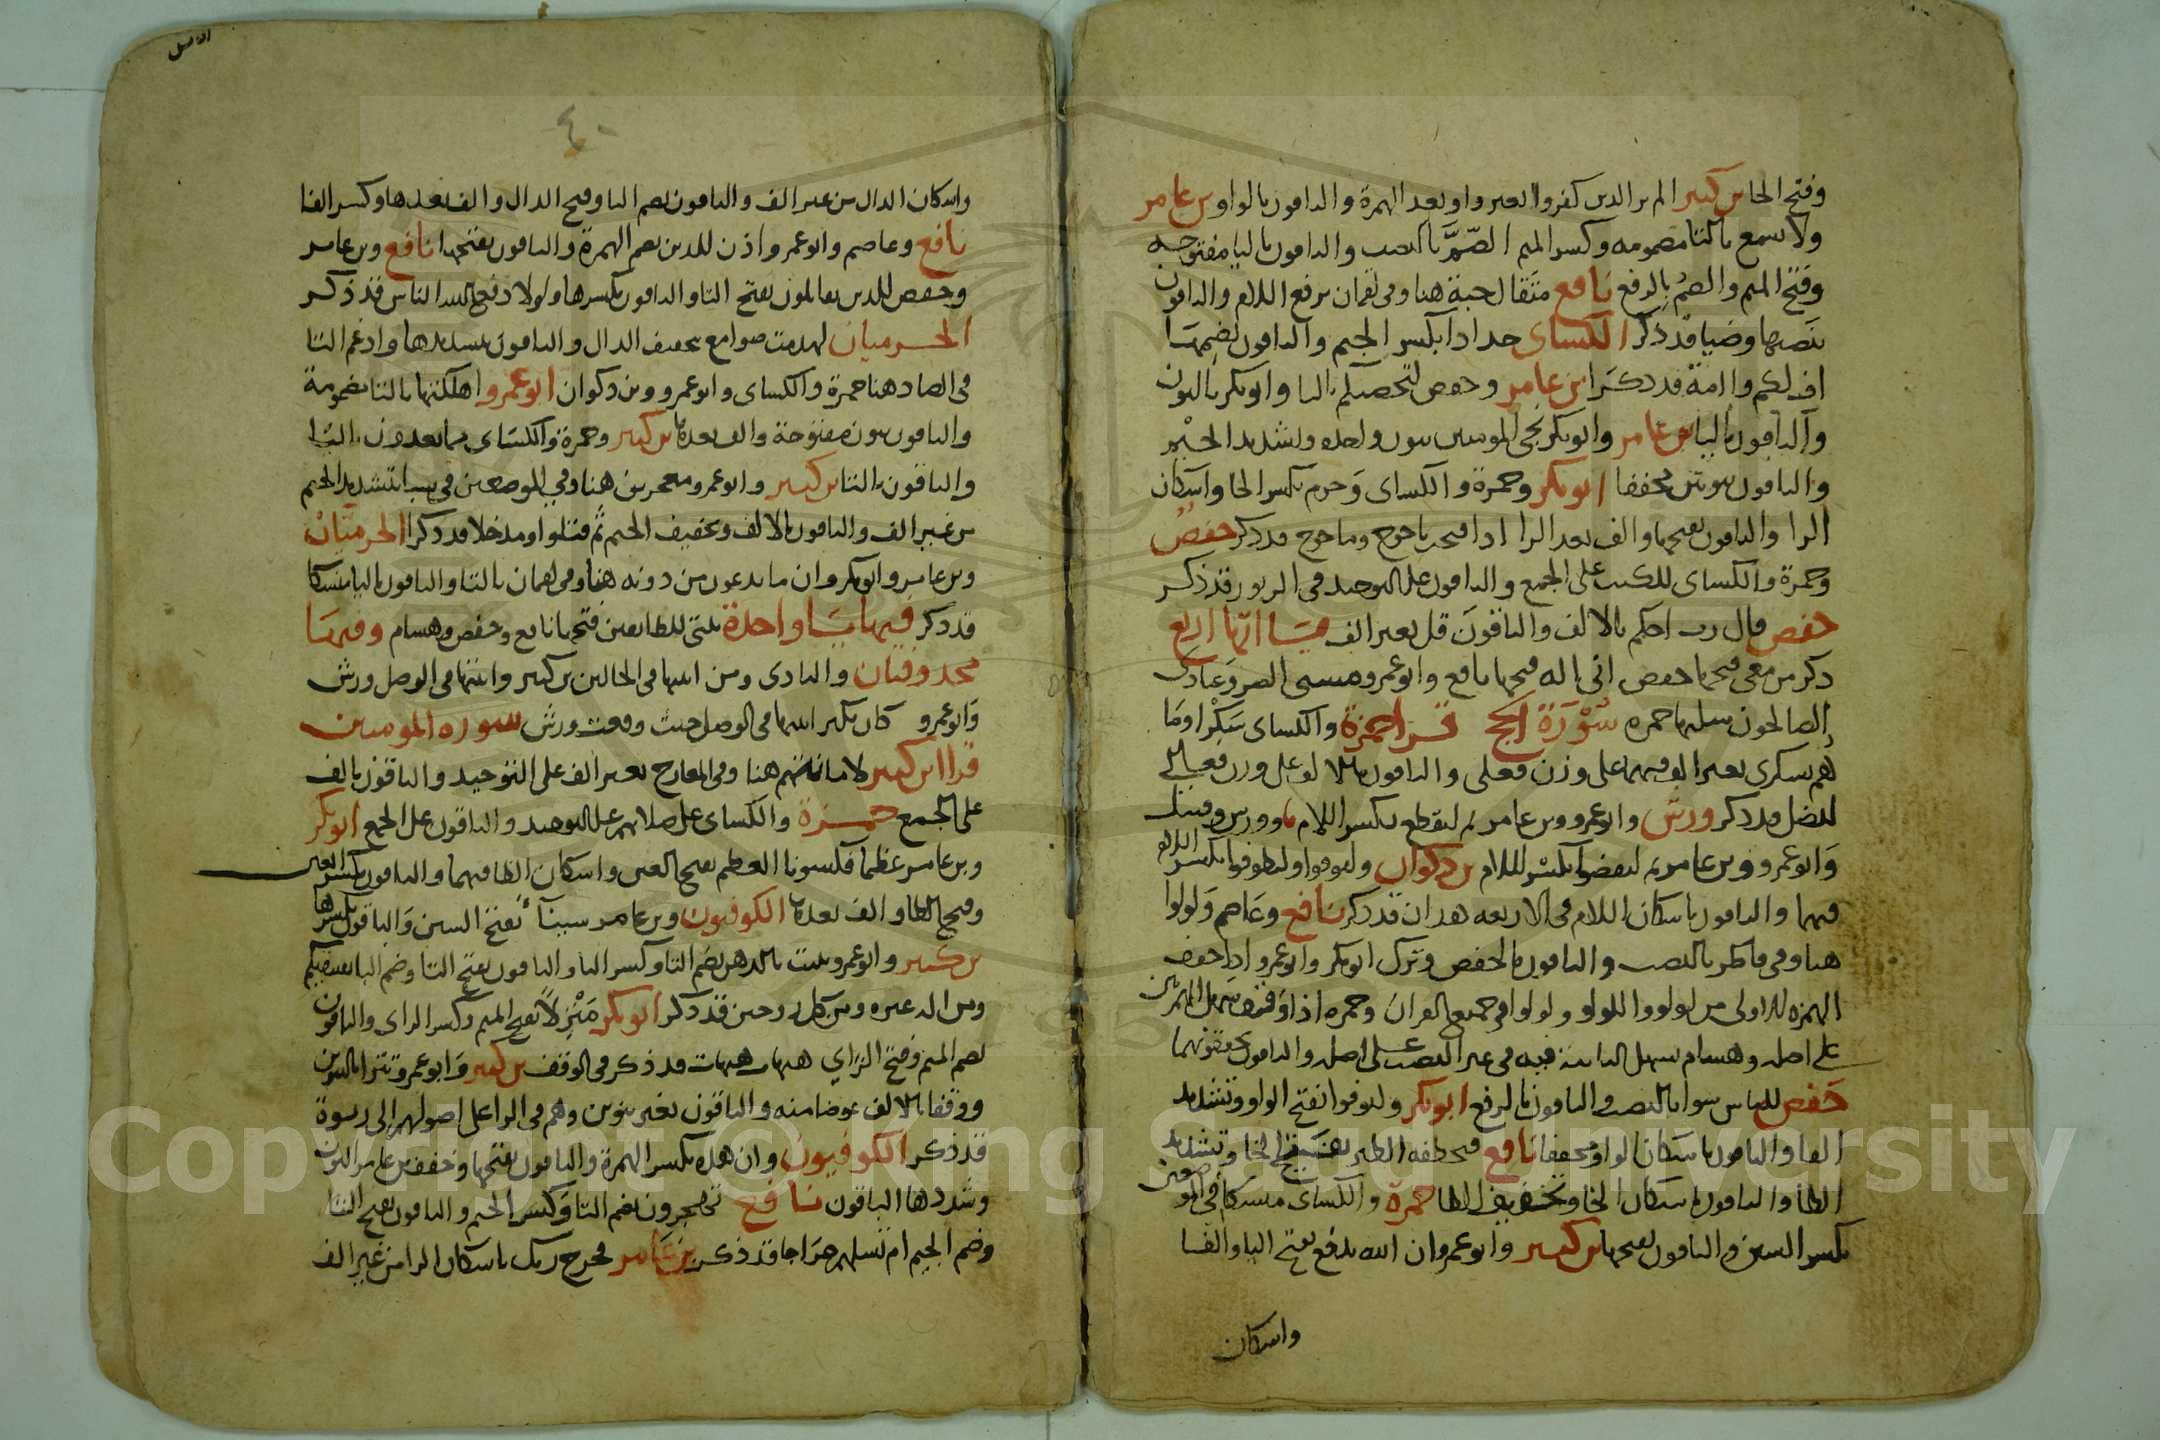 وفتح الحا بن كثير الم ير الذين كفروا بغير واو بعد الهمزة والباقون بالواو بن عامر
ولا تسمع بالتا مضمومه وكسر الميم الصُّمَّ بالنصب والباقون باليا مفتوحه
وفتح الميم والصمُ بالرفع نافع مثقال حبة هنا وفى لقمان برفع اللام والباقون
بنصبها وضيا قد ذكر الكساى جذاذا بكسر الجيم والباقون بضمها
اف لكم وائمة قد ذكرا ابن عامر وحفص لتحصنكم بالتا وابو بكر بالنون
والباقون باليا بن عامر وابو بكر نجى المومنين بنون واحده وتشديد الجيم
والباقون بنونين مخففا ابو بكر وحمزة والكساى وحرم بكسر الحا واسكان
الرا والباقون بفتحها والف بعد الرا اذا فتحت ياجوج وماجوج قد ذكر حفص
وحمزة والكساى للكتب على الجمع والباقون على التوحيد فى الزبور قد ذكر
حفص قال رب احكم بالالف والباقون قل بغير الف ياتها اربع
ذكر من معى فتحها حفص انى اله فتحها نافع وابو عمرو مسنى الضر وعبادى
الصالحون سكنها حمزه سُوْرَة الحج قرا حمزة والكساى سَكْرا وما
هم بسكرى بغير الف فيهما على وزن فعلى والباقون بالالف على وزن فعالى
ليضل قد ذكر ورش وابو عمرو وبن عامر ثم ليقطع بكسر اللام وورش وقنبل
وابو عمرو وبن عامر ثم ليقضوا بكسر اللام بن ذكوان وليوفوا وليطوفوا بكسر اللام
فيهما والباقون باسكان اللام فى الاربعه هذان قد ذكر نافع وعاصم ولولوا
هنا وفى فاطر بالنصب والباقون بالخفض وترك ابو بكر وابو عمرو اذا خفف
الهمزه الاولى من لولو واللولو ولولوا فى جميع القران وحمزه اذا وقف سهل الهمزتين
على اصله وهشام يسهل الثانية فيه فى غير النصب على اصله والباقون يحققونهما
حَفص للناس سوا بالنصب والباقون بالرفع ابو بكر وليوفوا بفتح الواو وتشديد
الفا والباقون باسكان الواو مخففا نافع فتخطفه الطير بفتح الخا وتشديد
الطا والباقون باسكان الخا وتخفيف الطا حمزة والكساى منسكا فى الموضعين
بكسر السين والباقون بفتحها بن كثير وابو عمرو ان الله يدفع بفتح اليا والفا
واسكان
٤٠
واسكان الدال من غير الف والباقون بضم اليا وفتح الدال والف بعدها وكسر الفا
نافع وعاصم وابو عمرو اذن للذين بضم الهمزة والباقون بفتحها نافع وبن عامر
وحفص للذين يقاتلون بفتح التا والباقون بكسرها ولولا دفع الله الناس قد ذكر
الحرميان لهدمت صوامع بتخفيف الدال والباقون بتشديدها وادغم التا
فى الصاد هنا حمزة والكساى وابو عمرو وبن ذكوان ابو عمرو اهلكتها بالتا مضمومة
والباقون بنون مفتوحة والف بعدها بن كثير وحمزة والكساى مما يعدون باليا
والباقون بالتا بن كثير وابو عمرو معجزين هنا وفى الموضعين فى سبا بتشديد الجيم
من غير الف والباقون بالالف وتخفيف الجيم ثم قتلوا ومدخلا قد ذكر الحرميان
وبن عامر وابو بكر وان ما يدعون من دونه هنا وفى لقمان بالتا والباقون باليا منسكا
قد ذكر فيها يَا واحدة بيتى للطايفين فتحها نافع وحفص وهشام وفيها
محذوفتان والبادى ومن اثبتها فى الحالين بن كثير واثبتها فى الوصل ورش
وابو عمرو كان نكير اثبتها فى الوصل حيث وقعت ورش سوره المومنين
قرا ابن كثير لامانتهم هنا وفى المعارج بغير الف على التوحيد والباقون بالف
على الجمع حمزة والكساى على صلاتهم على التوحيد والباقون على الجمع ابو بكر
وبن عامر عظما فكسونا العظم بفتح العين واسكان الظا فيهما والباقون بكسر العين
وفتح الظا والف بعدها الكوفيون وبن عامر سيناء بفتح السين والباقون بكسرها
بن كثير وابو عمرو تنبت بالدهن بضم التا وكسر البا والباقون بفتح التا وضم البا نسقيكم
ومن اله غيره ومن كل زوجين قد ذكر ابو بكر مَنْزِلاً بفتح الميم وكسر الزاى والباقون
بضم الميم وفتح الزاي هيهات هيهات قد ذكر فى الوقف بن كثير وابو عمرو تترا بالتنوين
ووقفا بالالف عوضا منه والباقون بغير تنوين وهم فى الرا على اصولهم الى ربوة
قد ذكر الكوفيون وان هذه بكسر الهمزة والباقون بفتحها وخفف بن عامر النون
وشددها الباقون نافع تهجرون بضم التا وكسر الجيم والباقون بفتح التا
وضم الجيم ام تسلهم خراجا قد ذكر بن عامر فخرج ربك باسكان الرا من غير الف